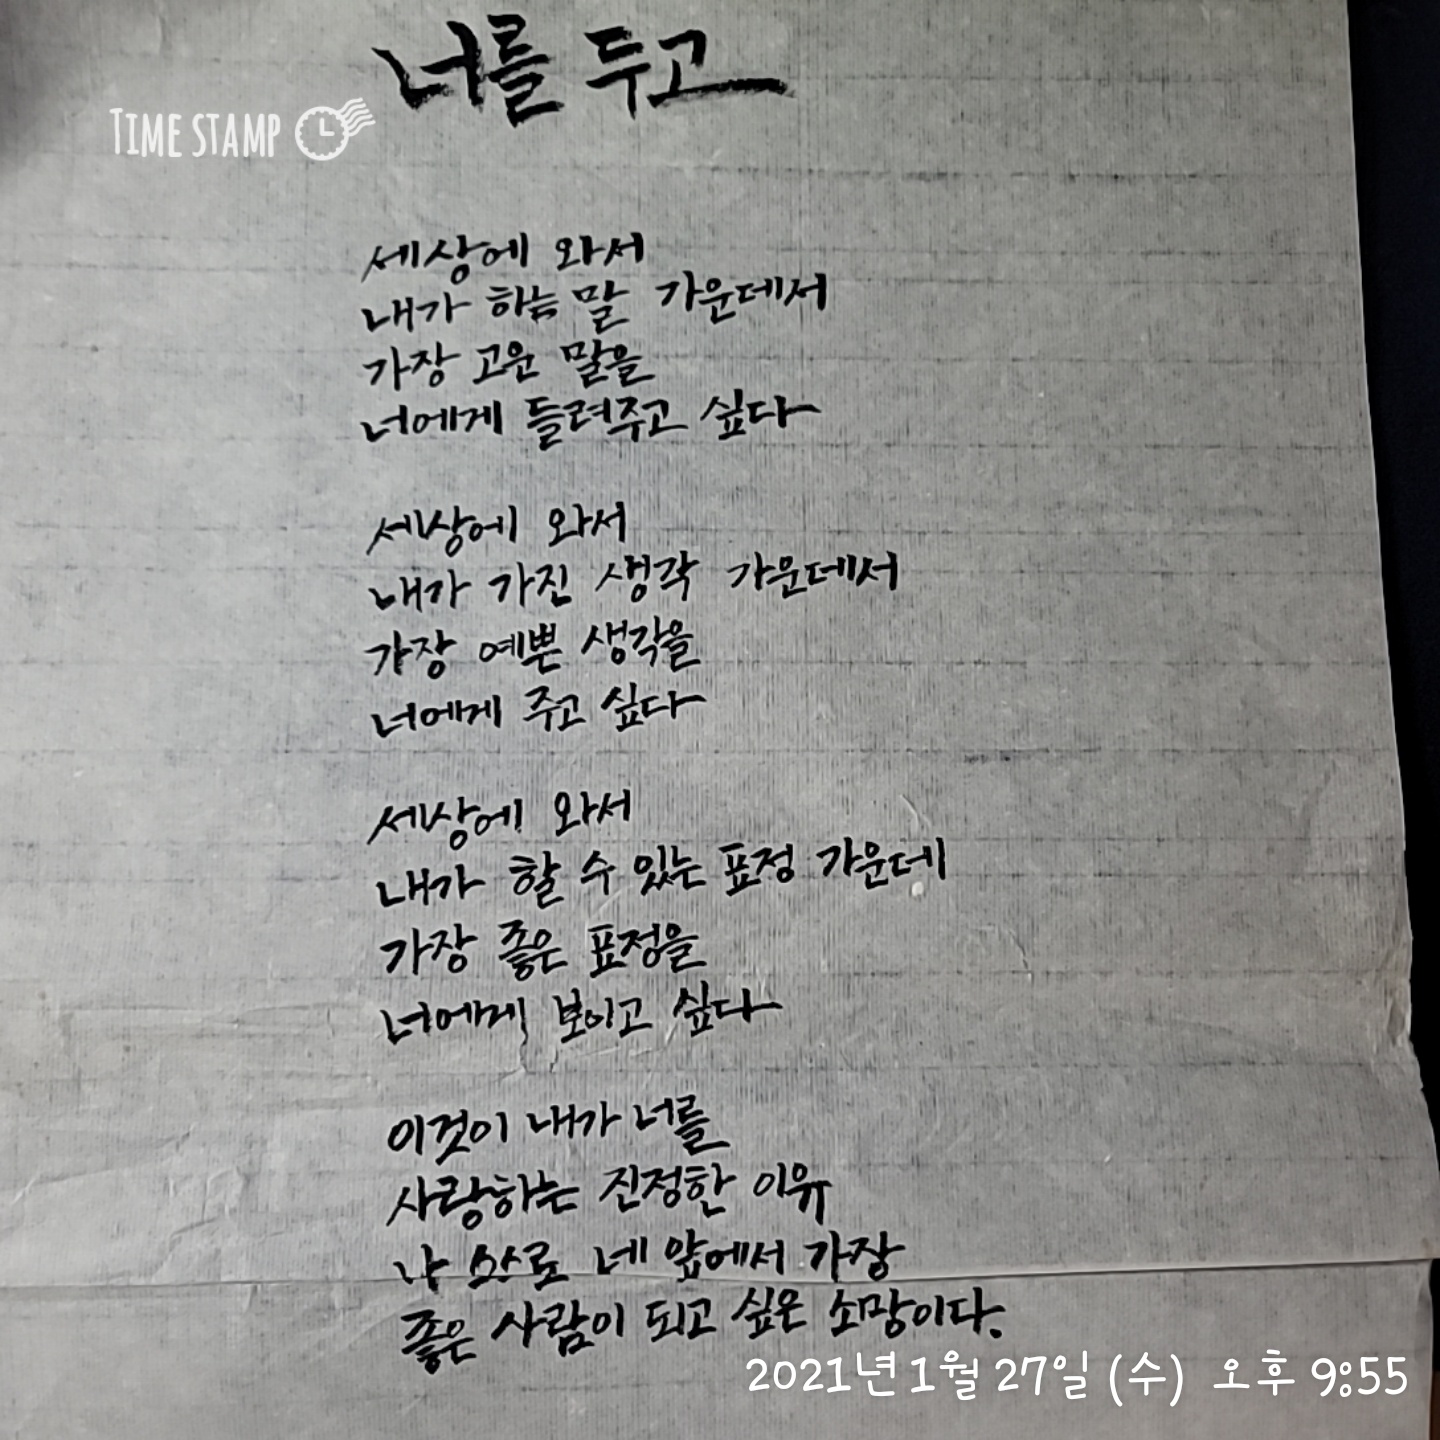 너를 두고
TIME STAMP
세상에 와서
내가 하는 말 가운데서
가장 고운 말을
너에게 들려주고 싶다
세상에 와서
내가 가진 생각 가운데서
가장 예쁜 생각을
너에게 주고 싶다
세상에 와서
내가 할 수 있는 표정 가운데
가장 좋은 표정을
너에게 보이고 싶다
이것이 내가 너를
사랑하는 진정한 이유
나 스스로 네 앞에서 가장
좋은 사람이 되고 싶은 소망이다.
2021년 1월 27일 (수) 오후 9:55